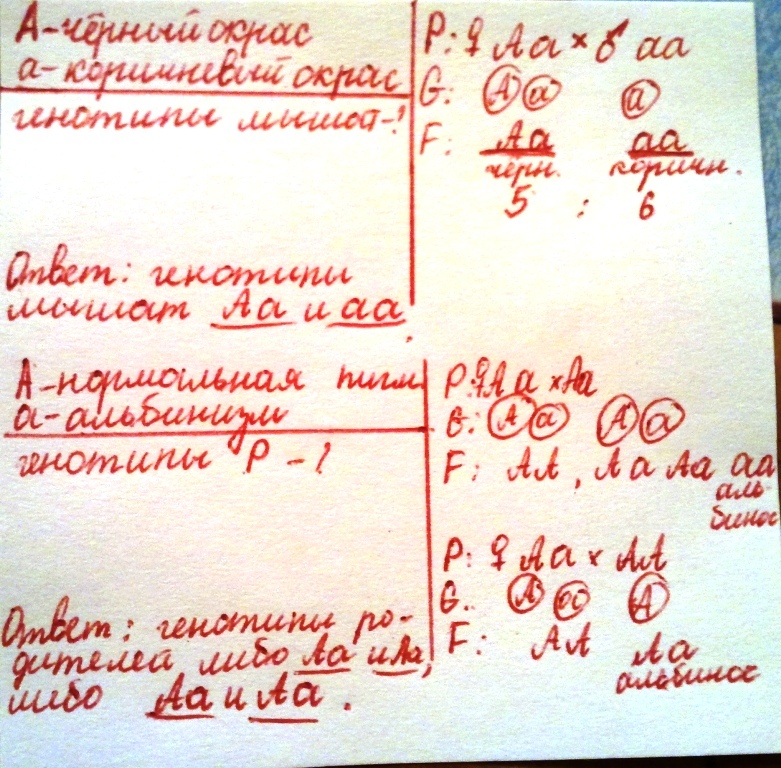 А-чёрный окрас
а-коричневый окрас
генотипы мышат-?
Ответ: генотипы
мышат Аа и аа.
P: ♀ Аа × ♂ аа
G: А а а
F: Аа аа
чёрн. коричн.
5 : 6
А-нормальная пигм.
а-альбинизм
генотипы P - ?
Ответ: генотипы ро-
дителей либо Аа и Аа,
либо Аа и Аа.
P: ♀ Аа × Аа
G: А а А а
F: АА, Аа Аа аа
аль-
бинос
P: ♀ Аа × АА
G. А а А
F: АА Аа
альбинос